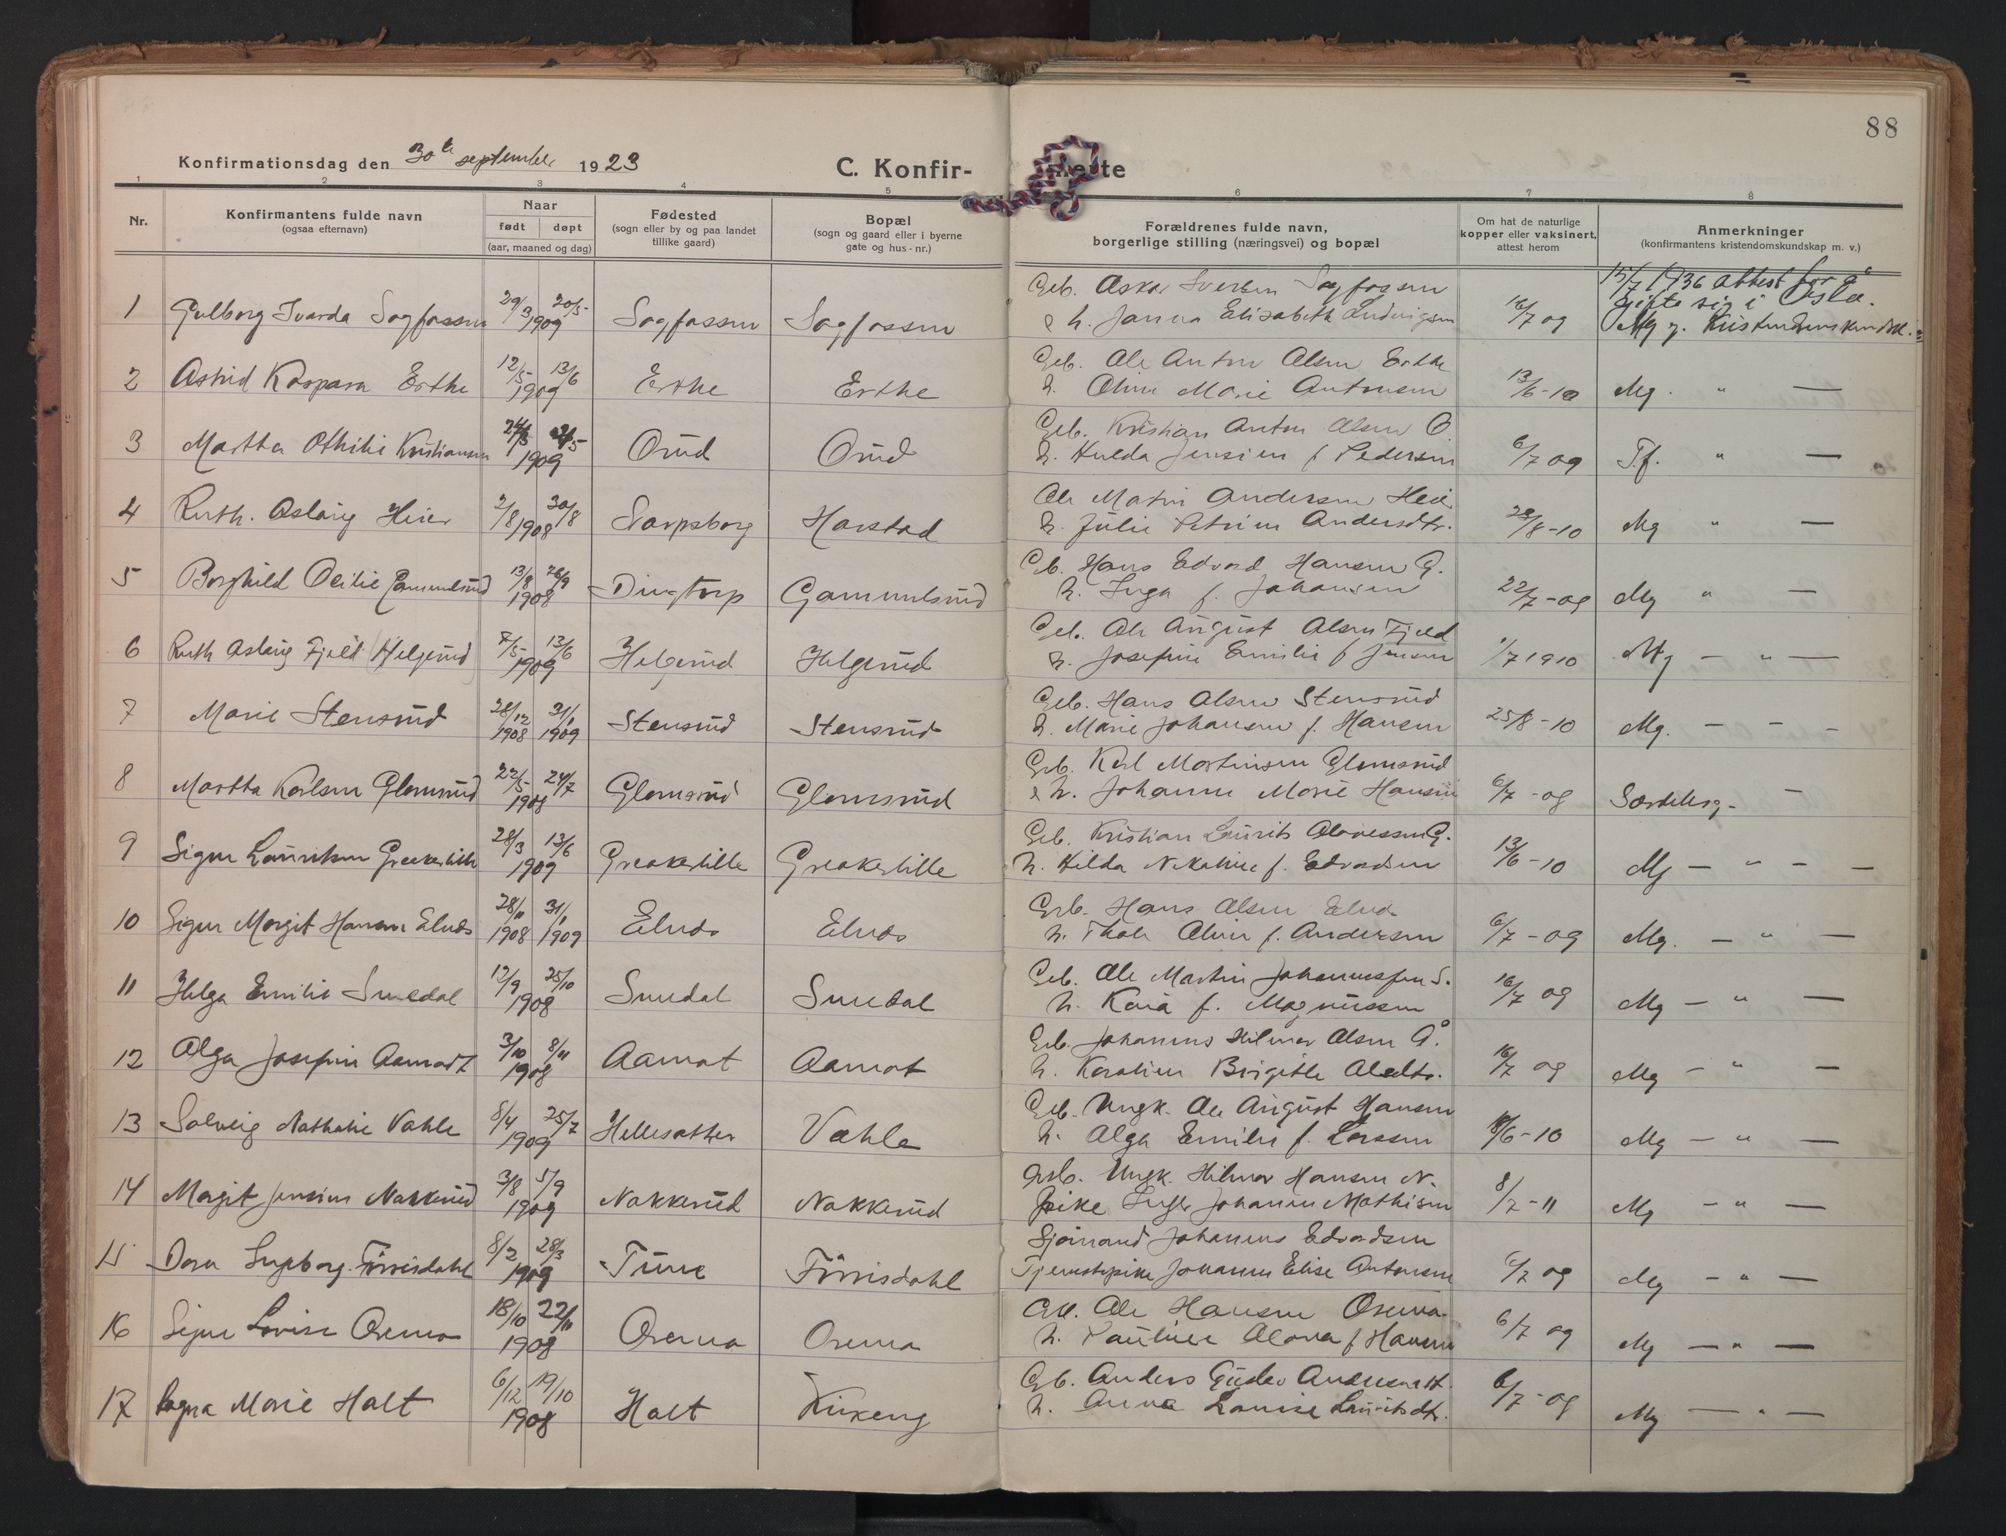 88
Konfirmationsdag den 30te september 1923
C. Konfir- merte
1 2 3 4 5 6 7 8
Nr.
Konfirmantens fulde navn
(ogsaa efternavn)
Naar
født døpt
(aar, maaned og dag)
Fødested
(sogn eller by og paa landet
tillike gaard)
Bopæl
(sogn og gaard eller i byerne
gate og hus-nr.)
Forældrenes fulde navn,
borgerlige stilling (næringsvei) og bopæl
Om hat de naturlige
kopper eller vaksinert,
attest herom
Anmerkninger
(konfirmantens kristendomskundskap m. v.)
15/7 1936 attest for å
gifte sig i Oslo.
1 Gulborg Svarda Sagfossen 29/3 20/5 1909 Sagfossen Sagfossen
Gb. Askar Sagfossen
& h. Janna Elisabeth Ludvigsen 16/7 09 Mg.
2 Astrid Kaspara Erthe 12/5 13/6 1909 Erthe Erthe
Gb. Ole Anton Olsen Erthe
h. Oline Marie Antonsen 13/6-10 Mg. " —
3 Martha Othilie Kristiansen 1909 Orud Orud
Gb. Kristian Anton Olsen O.
h. Hulda Jensine f. Pedersen 6/7 09 T.f. " —
4 Ruth. Aslaug Heier 2/8 30/8 1908 Sarpsborg Harstad
Ole Martin Andersen Heie
h. Julie Petrine Andersdtr. 28/8-10 Mg " —
5 Borghild Cecilie Gammelsrud 13/8 26/9 1908 Dingtorp Gammelsrud
Gb. Hans Edvard Hansen G.
h. Inga f. Johansen 22/7-09 Mg " —
6 Ruth Aslaug Fjeld (Helgerud) 7/5 13/6 1909 Helgerud Helgerud
Gb. Ole August Olsen Fjeld
h. Josefine Emilie f. Jensen 1/7 1910 Mg — " —
7 Marie Stensrud 28/12 1908 31/1 1909 Stensrud Stensrud
Gb. Hans Olsen Stensrud
h. Marie Johansen f. Hansen 25/8-10 Mg. — - -
8 Martha Karlsen Glomsrud 22/5 24/7 1908 Glomsrud Glomsrud
Gb. Karl Martinsen Glomsrud
& h. Johanne Marie Hansen 6/7-09 Særdeles mg. —
9 Signe Lauritsen Greakerlille 28/3 13/6 1909 Greakerlille Greakerlille
Gb. Kristian Laurits Olavessen G.
h. Hilda Nikoline f. Edvardsen 13/6-10 Mg — " - —
10 Signe Margit Hansen Elnes 28/11 1908 31/1 1909 Elnes Elnes
Gb. Hans Olsen Elnes
h. Thole Oline f. Andersen 6/7-09 Mg. — " —
11 Helga Emilie Smedal 12/9 25/10 1908 Smedal Smedal
Gb. Ole Martin Johannessen S.
h. Kaia f. Magnussen 16/7 09 Mg — " —
12 Olga Josefine Aamodt 3/10 8/11 1908 Aamot Aamot
Gb. Johannes Hilmar Olsen Å.
h. Karoline Birgitte 16/7 09 Mg — " —
13 Solveig Nathalie Vahle 8/4 25/7 1909 Hellesather Vahle
Gb. Ungk. Ole August Hansen
h. Olga Emilie f. Larssen 18/6-10 Mg — " —
14 Margit Jensine Nakkerud 3/8 5/9 1909 Nakkerud Nakkerud
Gb. Ungk. Hilmar Hansen N.
Pike Johanne Mathisen 8/7-11 Mg — " —
15 Dora Ingeborg Tørrisdahl 8/2 28/3 1909 Tune Tørrisdahl
Sjømand Johannes Edvardsen
Tjenestepike Johanne Elise Antonsen 6/7 09 Mg — " —
16 Signe Lovise Osema 18/10 22/11 1908 Osema Osema
Ole Hansen Osema
h. Pauline Olava f. Hansen 6/7 09 Mg — " —
17 Ragna Marie Holt 6/12 19/10 1908 Holt Kirkeng
Gb. Anders Gustav Andersen H.
h. Anna Louise Lauritsdtr. 6/7-09 Mg — " —